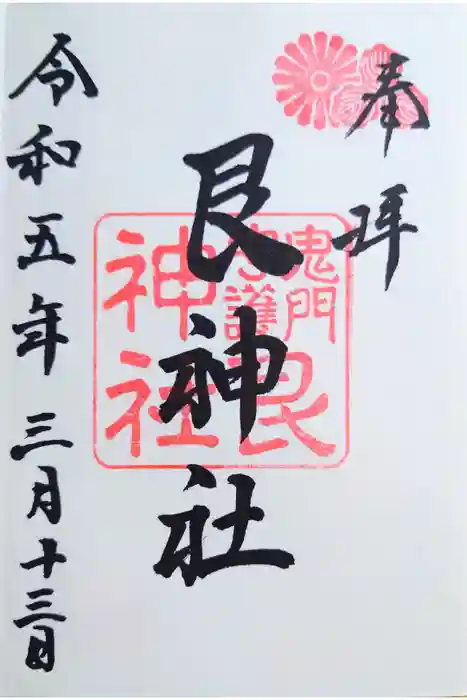 奉拝
艮神社
鬼門
守護
艮
神社
令和五年三月十三日